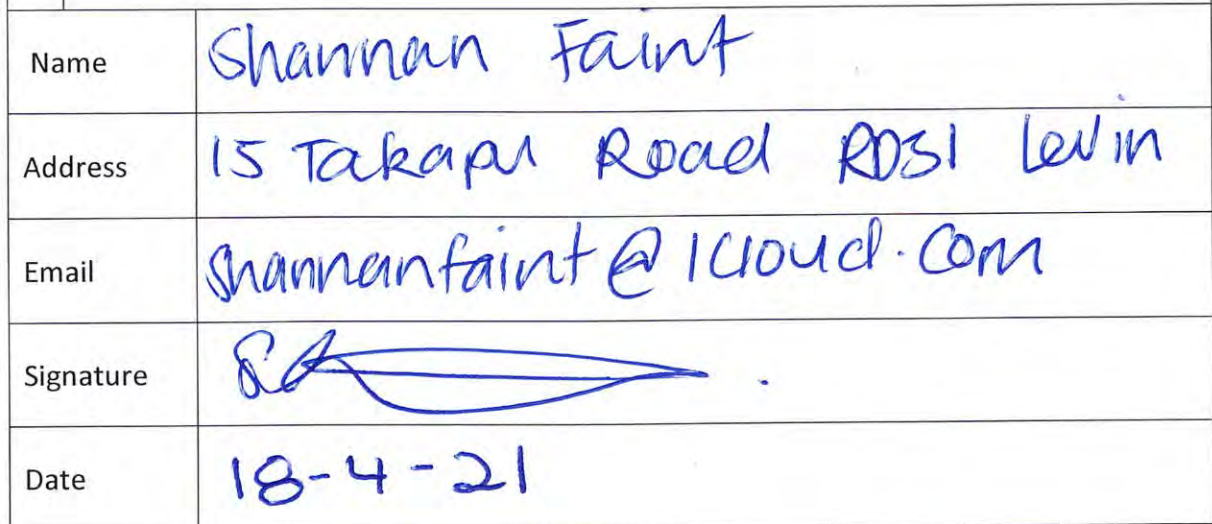 Name Shannan Faint
Address 15 Takapu Road RD31 Levin
Email shannanfaint@icloud.com
Signature
Date 18-4-21